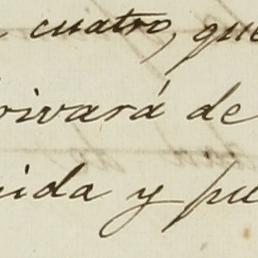 cuatro, que
rivará de
ida y pu